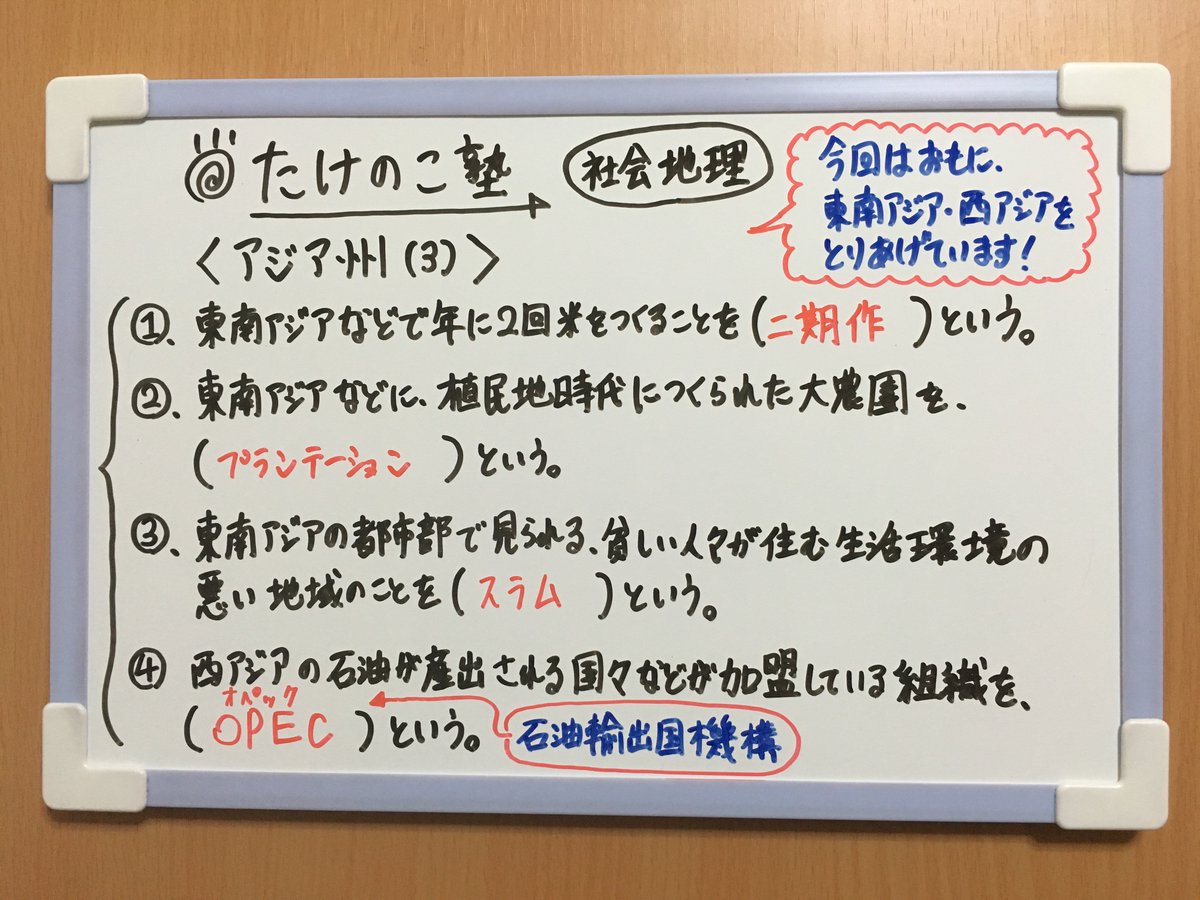 たけのこ塾
社会地理
今回はおもに、
東南アジア・西アジアを
とりあげています!
〈アジア州(3)〉
①、東南アジアなどで年に2回米をつくることを(二期作)という。
②、東南アジアなどに、植民地時代につくられた大農園を、
(プランテーション)という。
③、東南アジアの都市部で見られる、貧しい人々が住む生活環境の
悪い地域のことを(スラム)という。
④、西アジアの石油が産出される国々などが加盟している組織を、
オペック
(OPEC)という。
石油輸出国機構